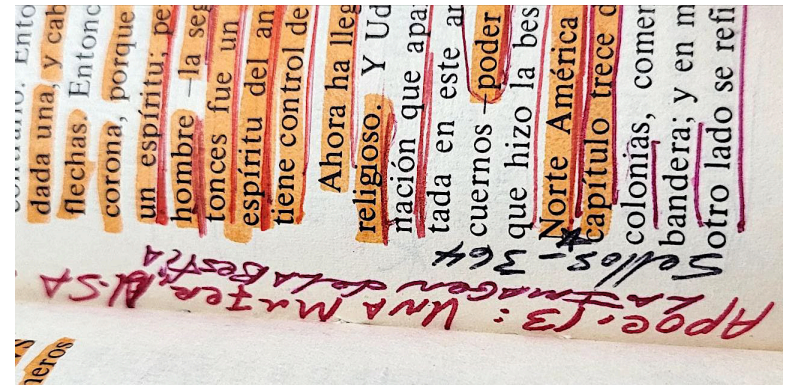 dada una, y cab
flechas. Entonc
corona, porque
un espíritu; pe
hombre —la seg
tonces fue un
espíritu del an
tiene control de
Ahora ha lleg
religioso. Y Ud
nación que apa
tada en este ar
cuernos —poder
que hizo la bes
Norte América
capítulo trece d
colonias, comer
bandera; y en m
otro lado se refi
Sellos - 364
La Imagen de La Bestia
Apoc. 13: Una Mujer
neros